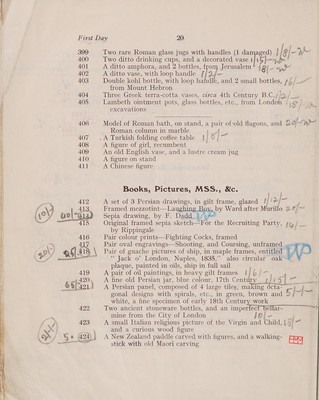 First Day 20
399 Two rare Roman glass jugs with handles (1 damaged)
400 Two ditto drinking cups, and a decorated vase
401 A ditto amphora, and 2 bottles, from Jerusalem
402 A ditto vase, with loop handle
403 Double kohl bottle, with loop handle, and 2 small bottles,
from Mount Hebron
404 Three Greek terra-cotta vases, circa 4th Century B.C.
405 Lambeth ointment pots, glass bottles, etc., from London
excavations
406 Model of Roman bath, on stand, a pair of old flagons, and
Roman column in marble
407 A Turkish folding coffee table
408 A figure of girl, recumbent
409 An old English vase, and a lustre cream jug
410 A figure on stand
411 A Chinese figure
Books, Pictures, MSS., &c.
412 A set of 3 Persian drawings, in gilt frame, glazed
413 Framed mezzotint—Laughing Boy, by Ward after Murillo
Sepia drawing, by F. Dadd
415 Original framed sepia sketch—For the Recruiting Party,
by Rippingale
416 Pair colour prints—Fighting Cocks, framed
417 Pair oval engravings—Shooting, and Coursing, unframed
418 Pair of guache pictures of ship, in maple frames, entitled
" Jack o' London, Naples, 1835," also circular oak
plaque, painted in oils, ship in full sail
419 A pair of oil paintings, in heavy gilt frames
420 A fine old Persian jar, blue colour, 17th Century
421 A Persian panel, composed of 4 large tiles, making octa-
gonal designs with spirals, etc., in green, brown and
white, a fine specimen of early 18th Century work
422 Two ancient stoneware bottles, and an imperfect bellar-
mine from the City of London
423 A small Italian religious picture of the Virgin and Child,
and a curious wood figure
424 A New Zealand paddle carved with figures, and a walking-
stick with old Maori carving